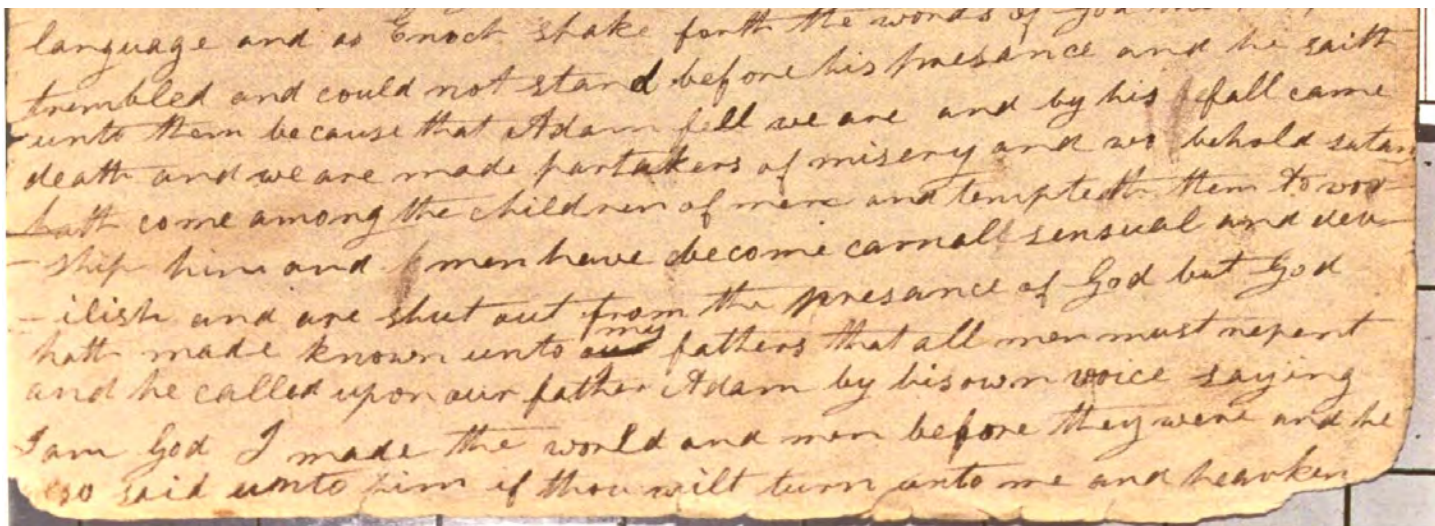 language and as Enoch spake forth the words of God the
trembled and could not stand before his presance and he saith
unto them because that Adam fell we are and by his fall came
death and we are made partakers of misery and wo behold satan
hath come among the children of men and tempteth them to wor-
-ship him and men have become carnall sensual and dev-
-ilish and are shut out from the presance of God but God
hath made known unto my fathers that all men must repent
and he called upon our father Adam by his own voice saying
I am God I made the world and men before they were and he
also said unto him if thou wilt turn unto me and hearken